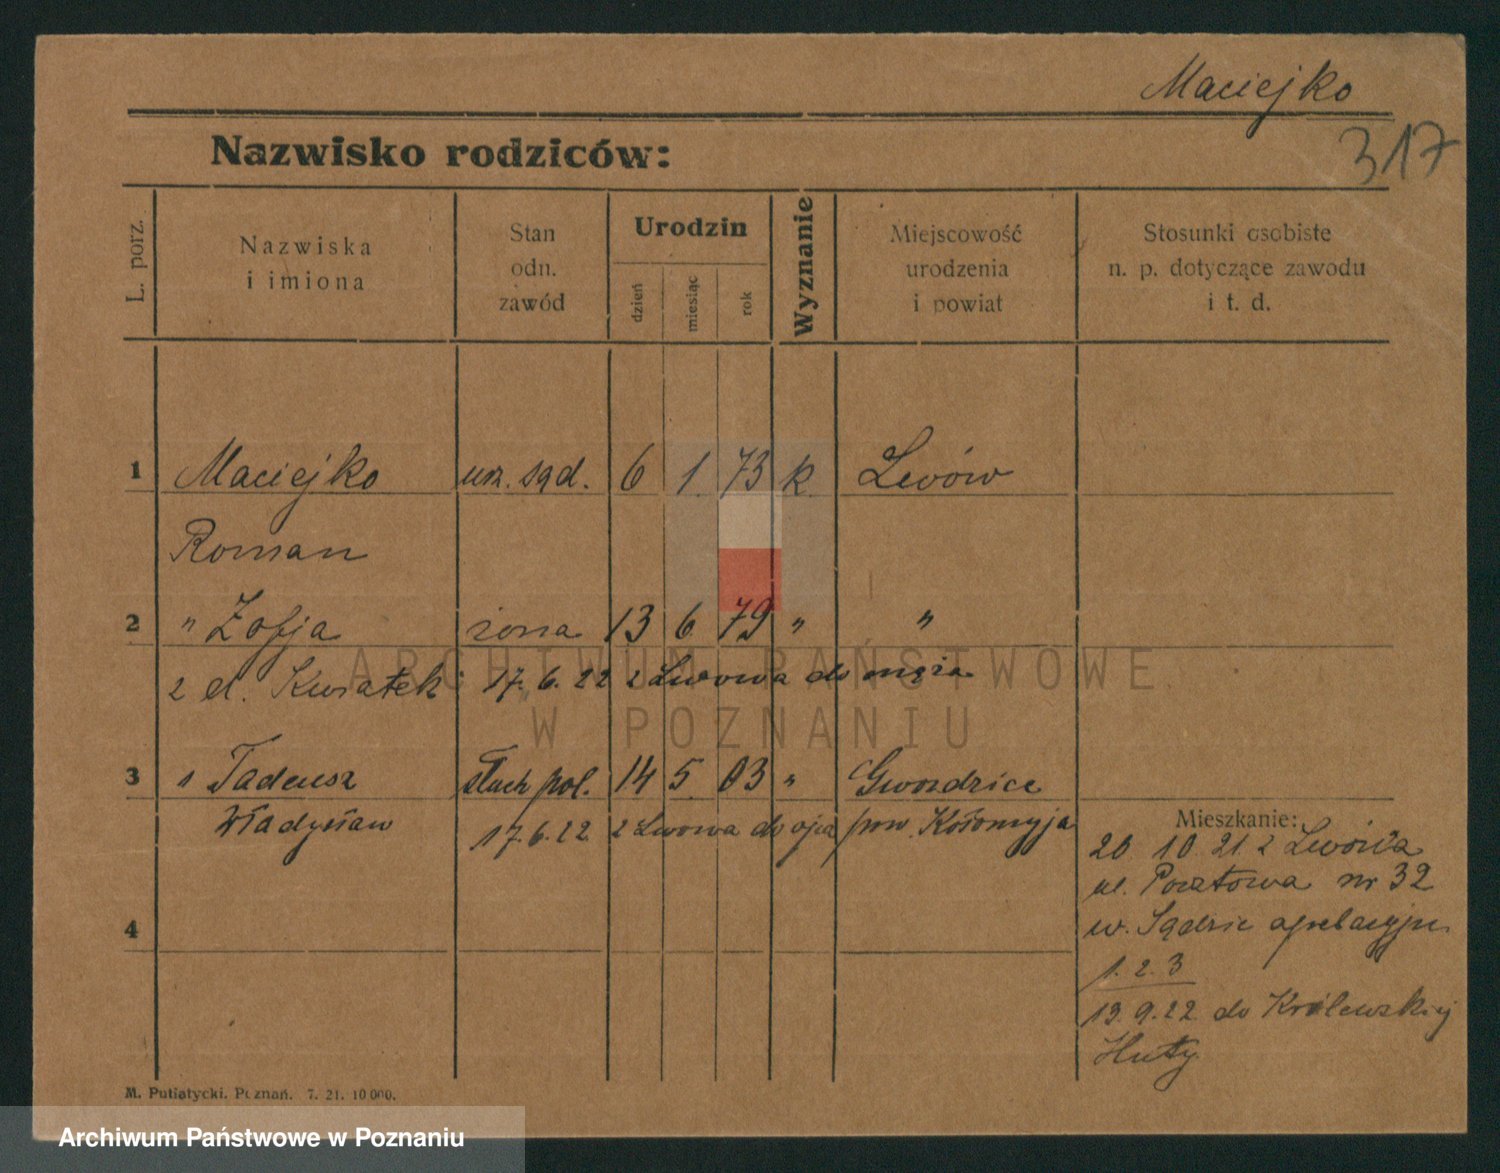 Maciejko
317
Nazwisko rodziców:
L. porz.
Nazwiska
i imiona
Stan
odn.
zawód
Urodzin
dzień
miesiąc
rok
Wyznanie
Miejscowość
urodzenia
i powiat
Stosunki osobiste
n. p. dotyczące zawodu
i t. d.
1 Maciejko urz. sąd. 6 1. 73 k. Lwów
Roman
2 " Zofja żona 13 6. 79 " "
z d. Kwiatek 17. 6. 22 z Lwowa do męża
3 " Tadeusz słuch pol. 14 5 03 " Gwozdzice
Władysław 17. 6. 22. z Lwowa do ojca pow. Kołomyja
Mieszkanie:
20 10. 21 z Lwowa
ul. Pocztowa nr 32
w. Sądzie
1. 2. 3
19. 9. 22 do Królewskiej
Huty
4
ARCHIWUM PAŃSTWOWE
W POZNANIU
M. Putiatycki. Poznań. 7. 21. 10 000.
Archiwum Państwowe w Poznaniu